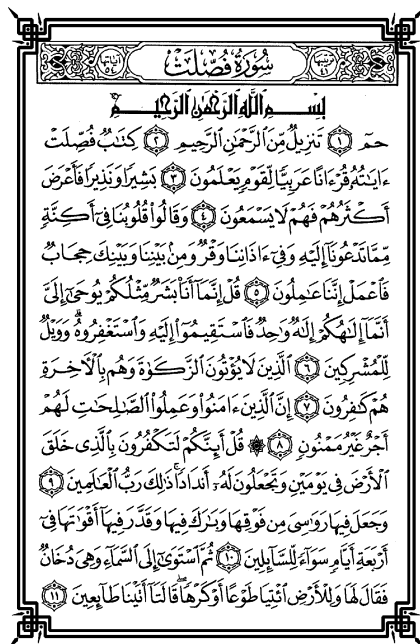 ترتيبها ٤١ سُورَةُ فُصِّلَتْ آياتها ٥٤
بِسْمِ اللَّهِ الرَّحْمَٰنِ الرَّحِيمِ
حمٓ ۝١ تَنزِيلٌ مِّنَ الرَّحْمَٰنِ الرَّحِيمِ ۝٢ كِتَابٌ فُصِّلَتْ
ءَايَاتُهُ قُرْءَانًا عَرَبِيًّا لِّقَوْمٍ يَعْلَمُونَ ۝٣ بَشِيرًا وَنَذِيرًا فَأَعْرَضَ
أَكْثَرُهُمْ فَهُمْ لَا يَسْمَعُونَ ۝٤ وَقَالُوا قُلُوبُنَا فِي أَكِنَّةٍ
مِّمَّا تَدْعُونَا إِلَيْهِ وَفِي ءَاذَانِنَا وَقْرٌ وَمِن بَيْنِنَا وَبَيْنِكَ حِجَابٌ
فَاعْمَلْ إِنَّنَا عَامِلُونَ ۝٥ قُلْ إِنَّمَا أَنَا بَشَرٌ مِّثْلُكُمْ يُوحَىٰ إِلَيَّ
أَنَّمَا إِلَٰهُكُمْ إِلَٰهٌ وَاحِدٌ فَاسْتَقِيمُوا إِلَيْهِ وَاسْتَغْفِرُوهُ ۗ وَوَيْلٌ
لِّلْمُشْرِكِينَ ۝٦ الَّذِينَ لَا يُؤْتُونَ الزَّكَوٰةَ وَهُم بِالْأَخِرَةِ
هُمْ كَافِرُونَ ۝٧ إِنَّ الَّذِينَ ءَامَنُوا وَعَمِلُوا الصَّالِحَاتِ لَهُمْ
أَجْرٌ غَيْرُ مَمْنُونٍ ۝٨ ۞ قُلْ أَئِنَّكُمْ لَتَكْفُرُونَ بِالَّذِي خَلَقَ
الْأَرْضَ فِي يَوْمَيْنِ وَتَجْعَلُونَ لَهُ أَندَادًا ۚ ذَٰلِكَ رَبُّ الْعَالَمِينَ ۝٩
وَجَعَلَ فِيهَا رَوَاسِيَ مِن فَوْقِهَا وَبَارَكَ فِيهَا وَقَدَّرَ فِيهَا أَقْوَاتَهَا فِي
أَرْبَعَةِ أَيَّامٍ سَوَاءً لِّلسَّائِلِينَ ۝١٠ ثُمَّ اسْتَوَىٰ إِلَى السَّمَاءِ وَهِيَ دُخَانٌ
فَقَالَ لَهَا وَلِلْأَرْضِ ائْتِيَا طَوْعًا أَوْ كَرْهًا قَالَتَا أَتَيْنَا طَائِعِينَ ۝١١